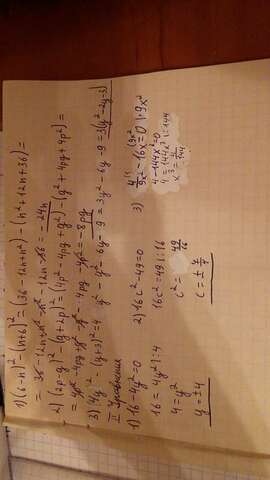 1) (6-n)²-(n+6)²=(36-12n+n²)-(n²+12n+36)=
= 36-12n+n²-n²-12n-36=-24n
2) (2p-q)²-(q+2p)²=(4p²-4pq+q²)-(q²+4pq+4p²)=
= 4p²-4pq+q²-q²-4pq-4p²=-8pq
3) (4y²-(y+3)²=4y²-y²-6y-9=3y²-6y-9=3(y²-2y-3)
II Уравнения
1) 16-4y²=0
16=4y²|:4
4=y²
y=±4
2) 16c²-49=0
16c²=49|:16
c²=49/16
c=±
3) 4/9x²-16x=0|·9x²
4-144x³=0
4=144x³|:144
x³=4/144